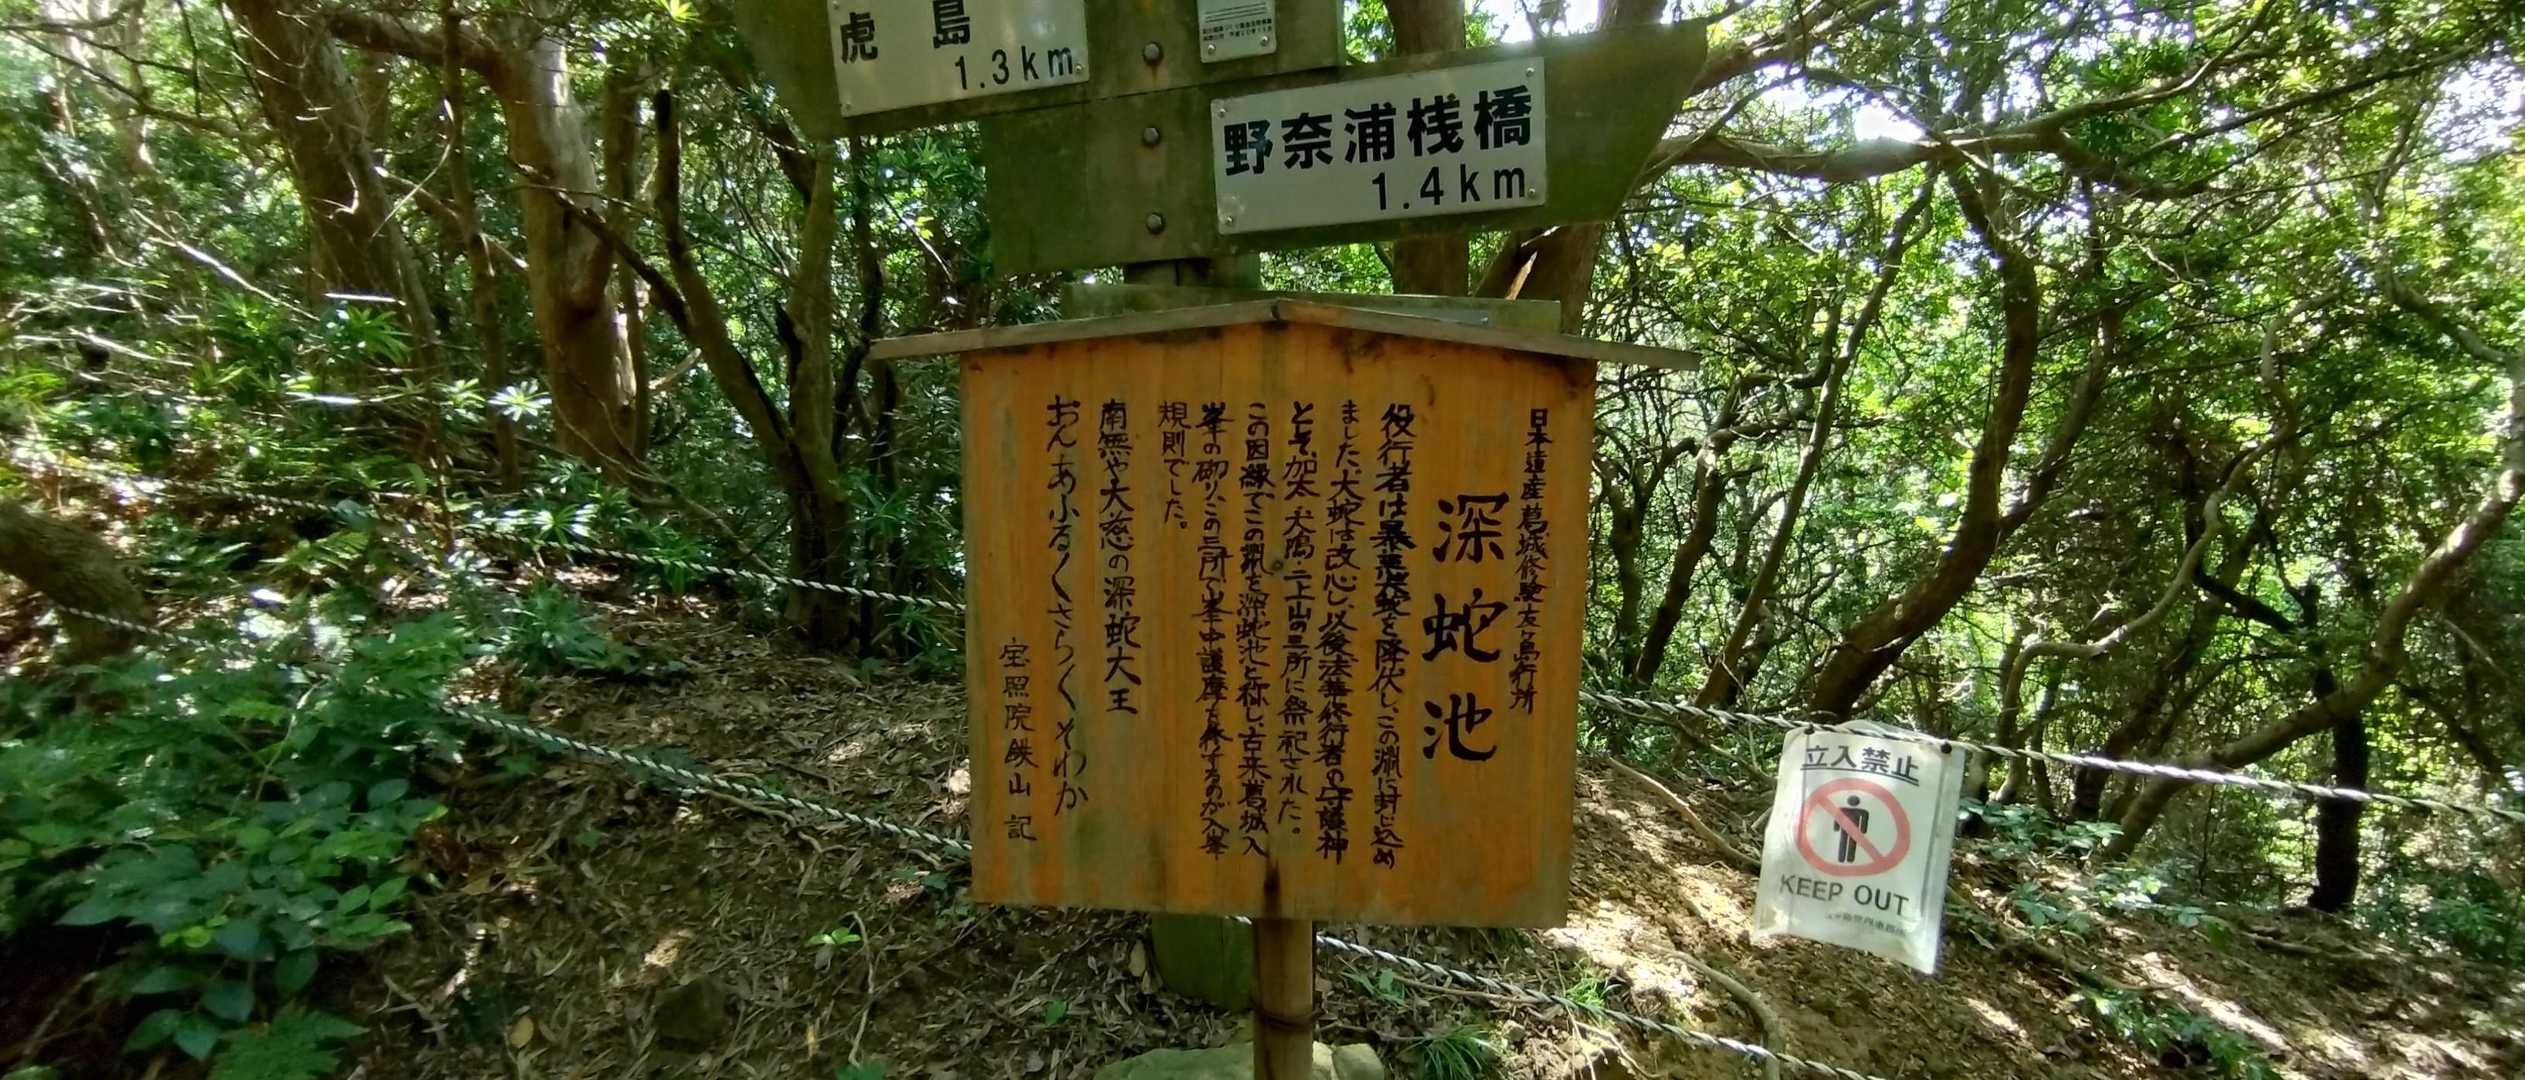 虎島
1.3km
野奈浦桟橋
1.4km
日本遺産葛城修験友ヶ島行所
深蛇池
役行者は暴悪大蛇を降伏し、この淵に封じ込め
ました。大蛇は改心し、以後法華修行者の守護神
となって、加太・犬鳴・二上山の三所に祭祀された。
この因縁でこの淵を深蛇池と称し、古来葛城入
峯の砌り、この三所で峯中護摩を修するのが入峯
規則でした。
南無や大慈の深蛇大王
おんあふる〱さら〱そわか
宝照院鉄山 記
立入禁止
KEEP OUT